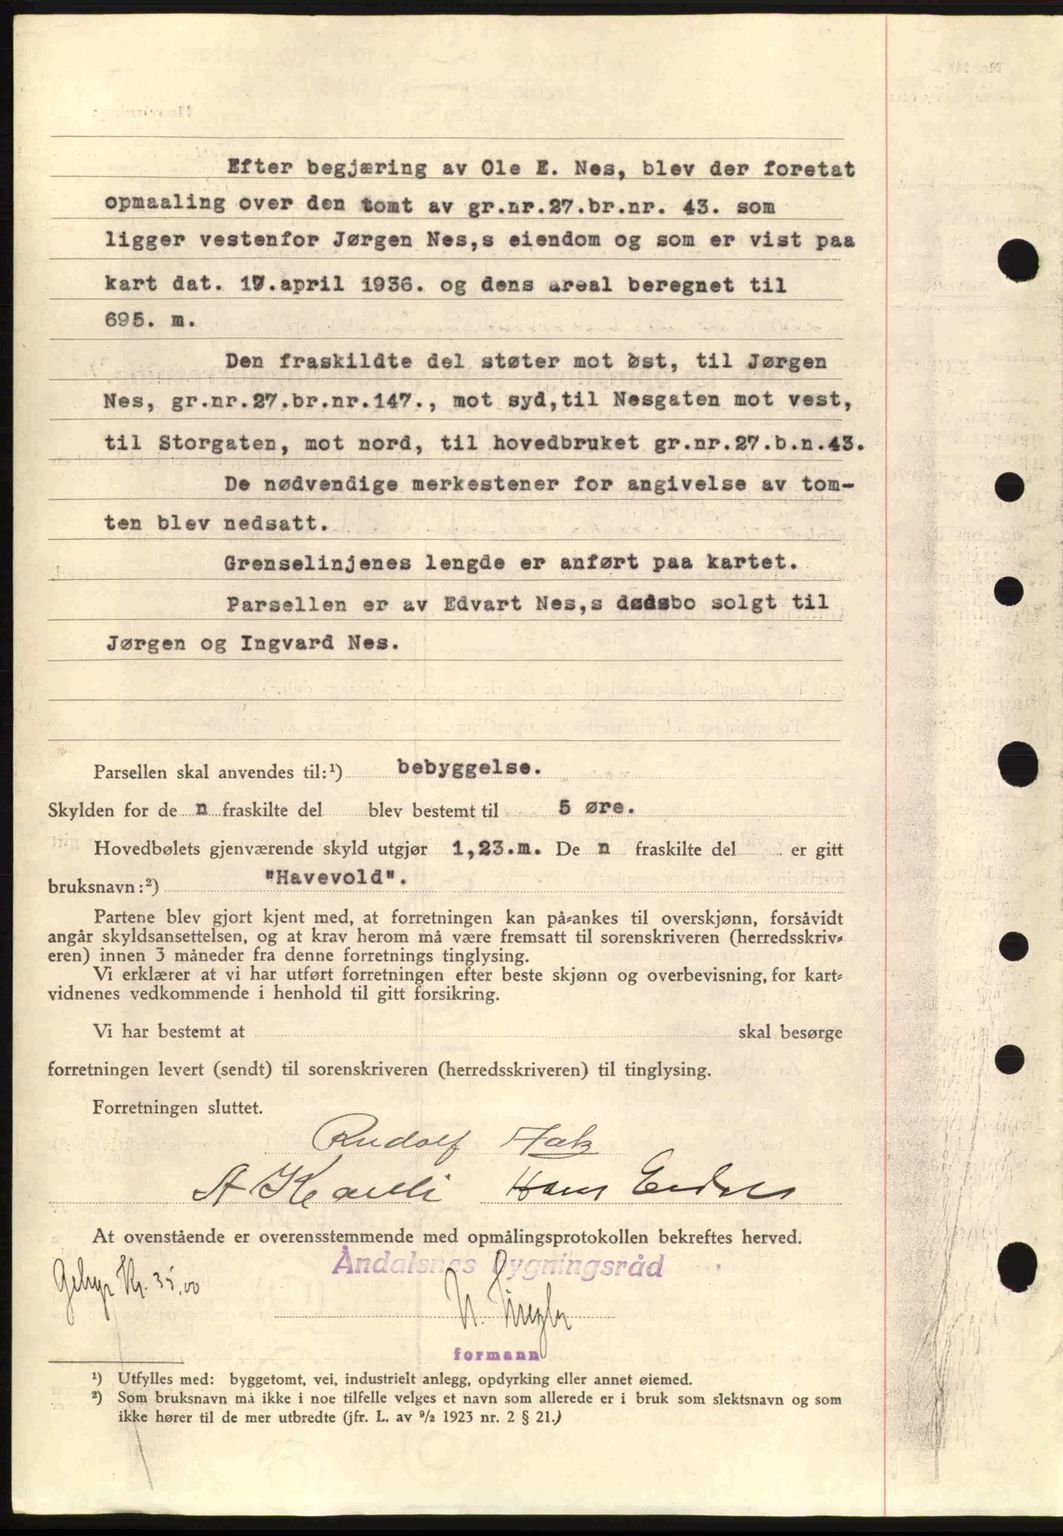 Efter begjæring av Ole E. Nes, blev der foretat
opmaaling over den tomt av gr.nr.27.br.nr. 43. som
ligger vestenfor Jørgen Nes,s eiendom og som er vist paa
kart dat. 17.april 1936. og dens areal beregnet til
695. m.
Den fraskildte del støter mot øst, til Jørgen
Nes, gr.nr.27.br.nr.147., mot syd,til Nesgaten mot vest,
til Storgaten, mot nord, til hovedbruket gr.nr.27.b.n.43.
De nødvendige merkestener for angivelse av tom-
ten blev nedsatt.
Grenselinjenes lengde er anført paa kartet.
Parsellen er av Edvart Nes,s dødsbo solgt til
Jørgen og Ingvard Nes.
Parsellen skal anvendes til:¹) bebyggelse.
Skylden for de n fraskilte del blev bestemt til 5 øre.
Hovedbølets gjenværende skyld utgjør 1,23.m. De n fraskilte del er gitt
bruksnavn:²) "Havevold".
Partene blev gjort kjent med, at forretningen kan på-ankes til overskjønn, forsåvidt
angår skyldsansettelsen, og at krav herom må være fremsatt til sorenskriveren (herredsskriv-
eren) innen 3 måneder fra denne forretnings tinglysing.
Vi erklærer at vi har utført forretningen efter beste skjønn og overbevisning, for kart-
vidnenes vedkommende i henhold til gitt forsikring.
Vi har bestemt at skal besørge
forretningen levert (sendt) til sorenskriveren (herredsskriveren) til tinglysing.
Forretningen sluttet.
Rudolf
A Kavli Hans
At ovenstående er overensstemmende med opmålingsprotokollen bekreftes herved.
Åndalsnes bygningsråd
Gebyr Kr. 35,00
formann
¹) Utfylles med: byggetomt, vei, industrielt anlegg, opdyrking eller annet øiemed.
²) Som bruksnavn må ikke i noe tilfelle velges et navn som allerede er i bruk som slektsnavn og som
ikke hører til de mer utbredte (jfr. L. av 9/2 1923 nr. 2 § 21.)